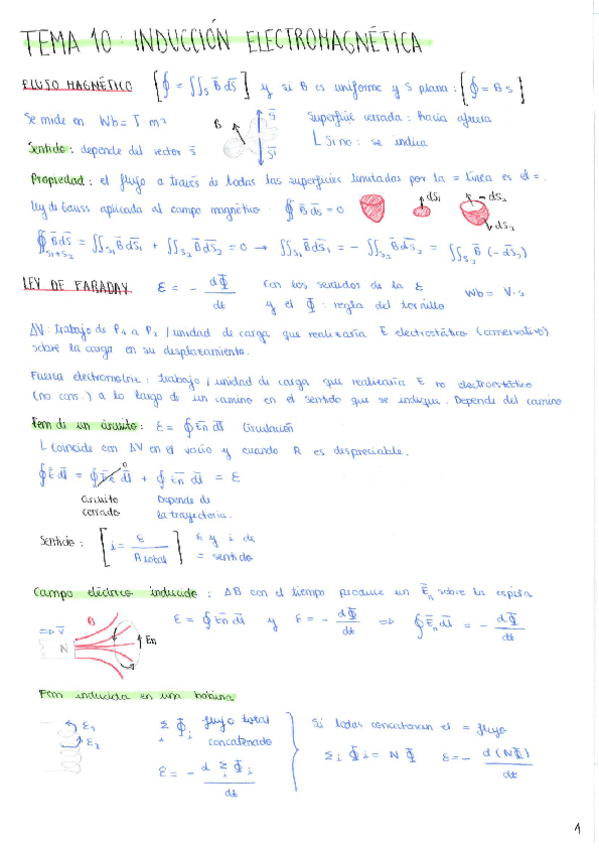 TEMA 10: INDUCCIÓN ELECTROMAGNÉTICA
FLUJO MAGNÉTICO [∮ = ∬s B̄ ds̄] y si B es uniforme y S plana: [∮ = B s]
Se mide en Wb = T·m² B s̄ Superficie cerrada: hacia afuera
Sentido: depende del vector s̄ s̄' L Si no: se indica
Propiedad: el flujo a través de todas las superficies limitadas por la = línea es el =.
Ley de Gauss aplicada al campo magnético. ∯ B̄ ds̄ = 0 dS₁ dS₂ dS₂
∯s₁+s₂ B̄ds̄ = ∬s₁ B̄ds̄₁ + ∬s₂ B̄ds̄₂ = 0 → ∬s₁ B̄ds̄₁ = - ∬s₂ B̄ds̄₂ = ∬s₂ B̄ (-ds̄₂)
LEY DE FARADAY ε = - dΦ/dt Con los sentidos de la ε
y el Φ: regla del tornillo Wb = V·s
ΔV: trabajo de P₁ a P₂ / unidad de carga que realizaría E electrostático (conservativo)
sobre la carga en su desplazamiento.
Fuerza electromotriz: trabajo / unidad de carga que realizaría E no electrostático
(no cons.) a lo largo de un camino en el sentido que se indique. Depende del camino
Fem de un circuito: ε = ∮ Ēn dl̄ Circulación
L Coincide con ΔV en el vacío y cuando R es despreciable.
∮ Ē dl̄ = ∮ Ēe dl̄ 0 + ∮ Ēn dl̄ = ε
Circuito cerrado Depende de la trayectoria.
Sentido: [i = ε / R total] ε y i de
= sentido
Campo eléctrico inducido: ΔB con el tiempo produce un Ēn sobre la espira
⇒ v̄ N B En ε = ∮ Ēn dl̄ y ε = - dΦ/dt ⇒ ∮ Ēn dl̄ = - dΦ/dt
Fem inducida en una bobina
ε₁ Σi Φi flujo total Si todas concatenan el = flujo
ε₂ concatenado Σi Φi = N Φ ε = - d(NΦ)/dt
ε = - d Σi Φi / dt
1